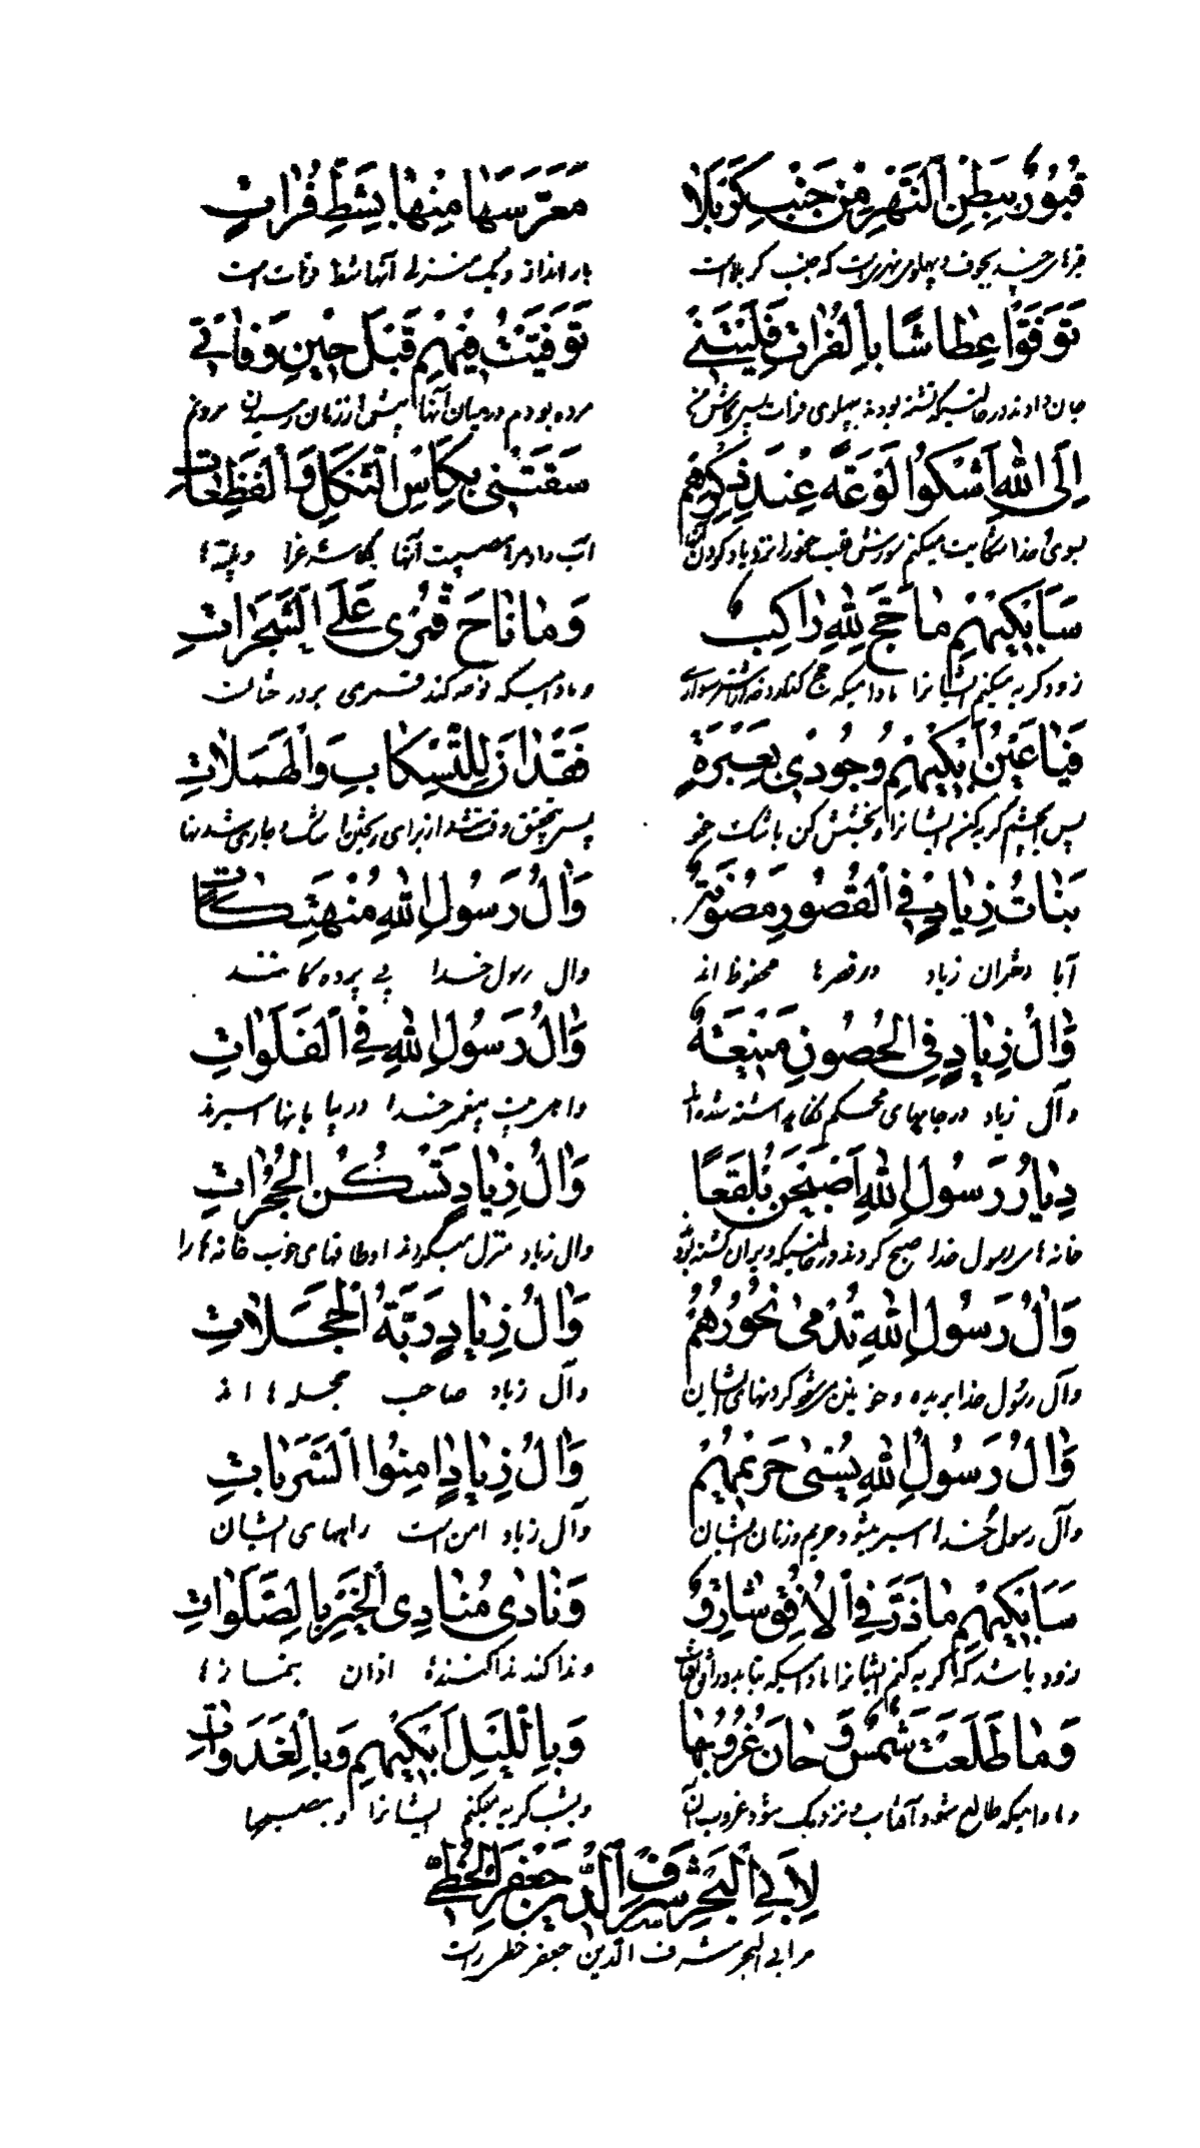 قُبُورٌ بِبَطْنِ النَّهْرِ مِنْ جَنْبِ كَرْبَلَا مُعَرَّسُهَا مِنْهَا بِشَطِّ فُرَاتٍ
بار انداز و منزل آنها شط فرات است
تُوُفُّوا عِطَاشًا بِالْفُرَاتِ فَلَيْتَنِي تُوُفِّيتُ فِيهِمْ قَبْلَ حِينِ وَفَاتِي
جان دادند در حالتیکه تشنه بودند بپهلوی فرات پس کاش من مرده بودم در میان آنها پیش از زمان رسیدن مردنم
إِلَى اللهِ أَشْكُو لَوْعَةً عِنْدَ ذِكْرِهِمْ سَقَتْنِي بِكَأْسِ الثُّكْلِ وَالْفَظَعَاتِ
بسوی خدا شکایت میکنم سوزش قلب خود را نزد یاد کردن
سَأَبْكِيهِمْ مَا حَجَّ لِلهِ رَاكِبٌ وَمَا نَاحَ قُمْرِيٌّ عَلَى الشَّجَرَاتِ
زود گریه میکنم ایشانرا مادامیکه حج کند و مادامیکه نوحه کند قمری بر درختان
فَيَا عَيْنُ أَبْكِيهِمْ وَجُودِي بِعَبْرَةٍ فَقَدْ آنَ لِلتَّسْكَابِ وَالْهَمَلَاتِ
پس ای چشم گریه کن ایشانرا و بخشش کن باشک خود
بَنَاتُ زِيَادٍ فِي الْقُصُورِ مَصُونَةٌ وَآلُ رَسُولِ اللهِ مُنْهَتِكَاتِ
آیا دختران زیاد در قصرها محفوظ اند وال رسول خدا بی پرده گانند
وَآلُ زِيَادٍ فِي الْحُصُونِ مَنِيعَةٌ وَآلُ رَسُولِ اللهِ فِي الْفَلَوَاتِ
وآل زیاد در جایهای محکم نگاه داشته شده اند پیغمبر خدا در بیابانها اسیرند
دِيَارُ رَسُولِ اللهِ أَصْبَحْنَ بَلْقَعًا وَآلُ زِيَادٍ تَسْكُنُ الْحُجُرَاتِ
خانه های رسول خدا صبح کردند در حالتیکه ویران گشته وال زیاد منزل میگیرند خانه ها را
وَآلُ رَسُولِ اللهِ تُدْمَى نُحُورُهُمْ وَآلُ زِيَادٍ رَبَّةُ الْحَجَلَاتِ
وآل رسول خدا بریده و خونین میشود گردنهای ایشان وآل زیاد صاحب حجله ها اند
وَآلُ رَسُولِ اللهِ يُسْبَى حَرِيمُهُمْ وَآلُ زِيَادٍ آمِنُوا السَّرَبَاتِ
وآل رسول خدا اسیر میشود حریم و زنان ایشان وآل زیاد امن است راههای ایشان
سَأَبْكِيهِمْ مَا ذَرَّ فِي الْأُفْقِ شَارِقٌ وَنَادَى مُنَادِي الْخَيْرِ بِالصَّلَوَاتِ
زود باشد که گریه کنم ایشانرا مادامیکه بتابد در افق وندا کند ندا کننده اذان بنمازها
وَمَا طَلَعَتْ شَمْسٌ وَحَانَ غُرُوبُهَا وَبِاللَّيْلِ أَبْكِيهِمْ وَبِالْغَدَوَاتِ
ومادامیکه طالع شود آفتاب و نزدیک شود غروب آن وبشب گریه میکنم ایشانرا و بصبحها
لِأَبِي الْبَحْرِ شَرَفِ الدِّينِ جَعْفَرٍ الْخَطِّيِّ
مر ابی البحر شرف الدین جعفر خطی راست